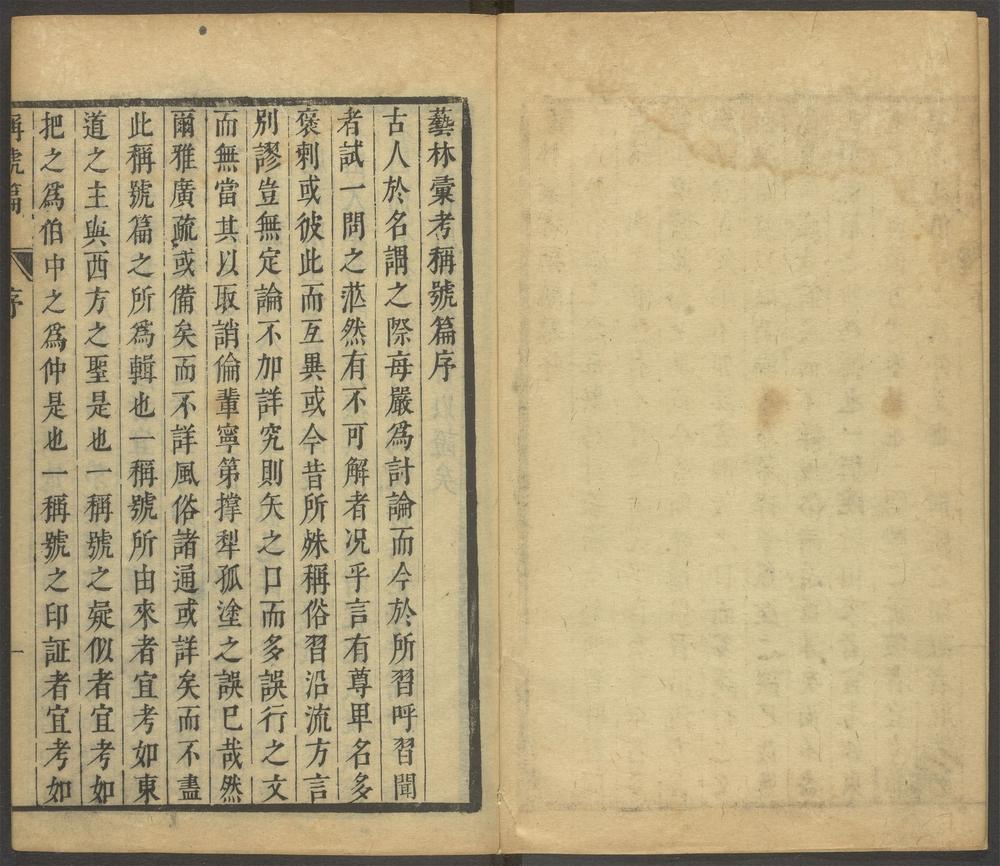 藝林彚考稱號篇序
古人於名謂之際每嚴爲討論而今於所習呼習聞
者試一問之茫然有不可解者况乎言有尊卑名多
褒刺或彼此而互異或今昔所殊稱俗習沿流方言
別謬豈無定論不加詳究則矢之口而多誤行之文
而無當其以取誚倫輩寧第撑犁孤塗之誤巳哉然
爾雅廣疏或備矣而不詳風俗諸通或詳矣而不盡
此稱號篇之所爲輯也一稱號所由來者宜考如東
道之主與西方之聖是也一稱號之疑似者宜考如
把之爲伯中之爲仲是也一稱號之印証者宜考如
稱號篇 序 一